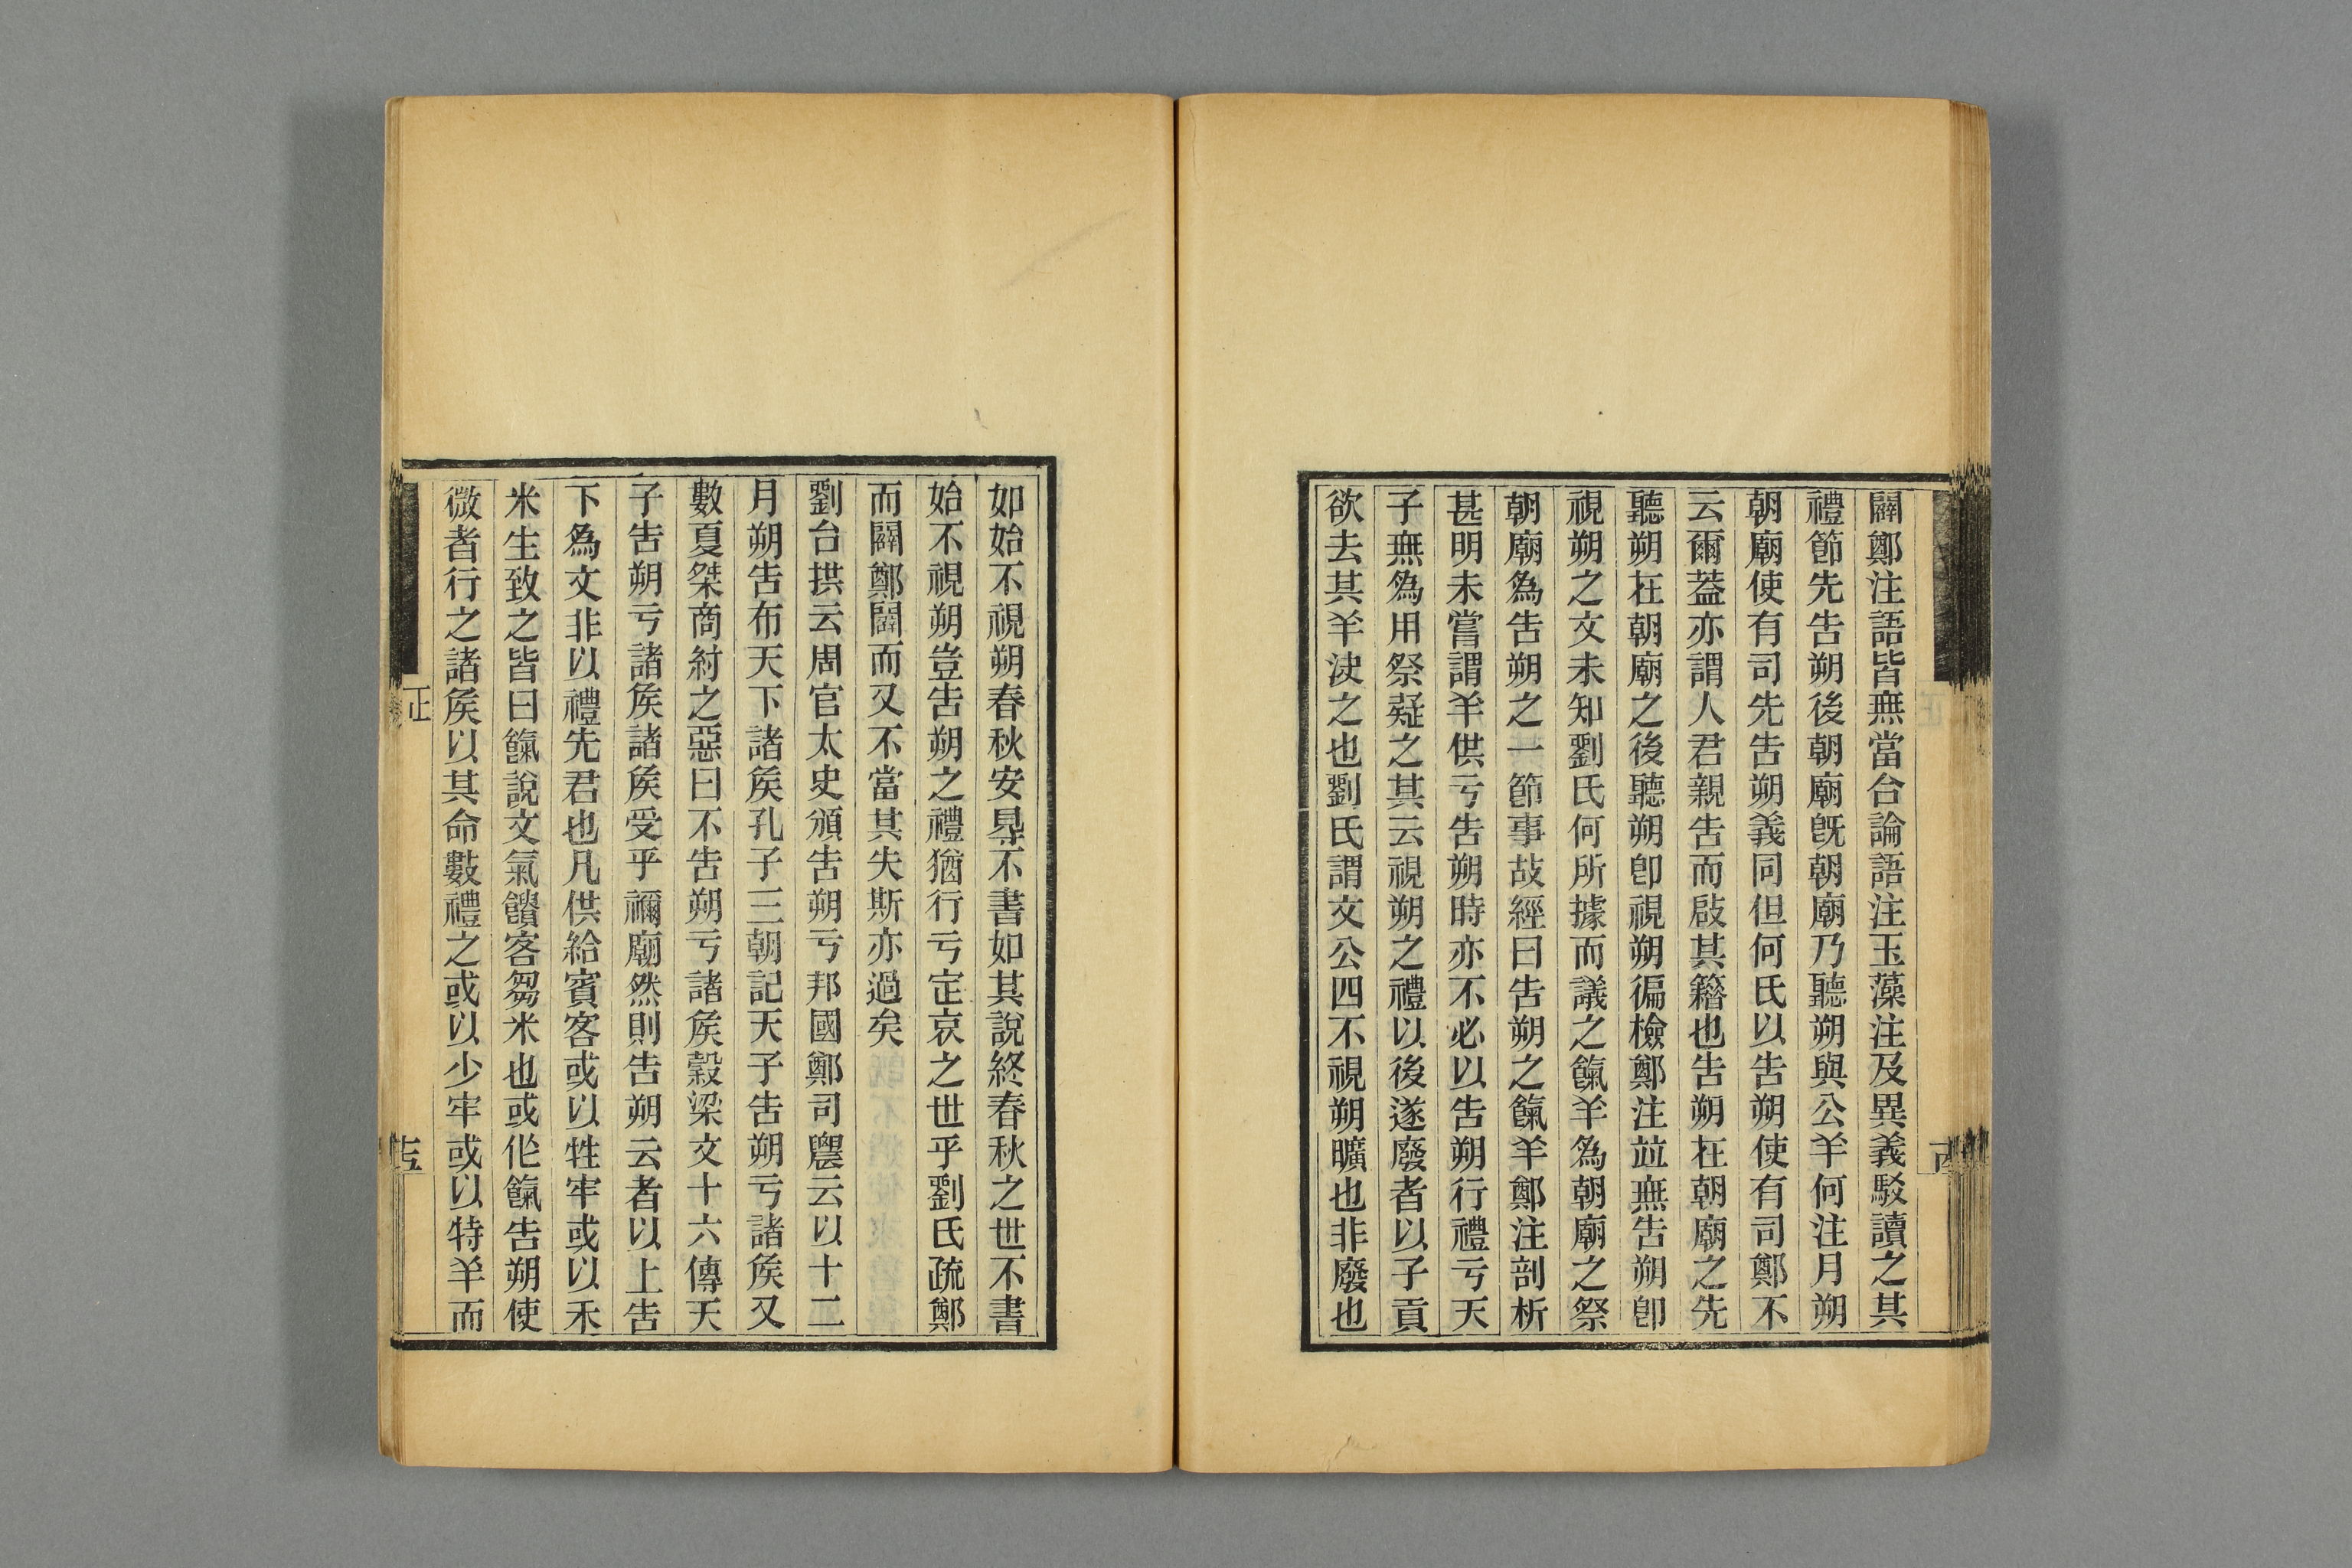 闢鄭注語皆無當台論語注玉藻注及異義駁讀之其
禮節先告朔後朝廟旣朝廟乃聽朔與公羊何注月朔
朝廟使有司先告朔義同但何氏以告朔使有司鄭不
云爾葢亦謂人君親告而啟其籍也告朔在朝廟之先
聽朔在朝廟之後聽朔卽視朔徧檢鄭注竝無告朔卽
視朔之文未知劉氏何所據而議之餼羊為朝廟之祭
朝廟為告朔之一節事故經曰告朔之餼羊鄭注剖析
甚明未嘗謂羊供亏告朔時亦不必以告朔行禮亏天
子無為用祭疑之其云視朔之禮以後遂廢者以子貢
欲去其羊決之也劉氏謂文公四不視朔曠也非廢也
如始不視朔春秋安㝵不書如其說終春秋之世不書
始不視朔豈告朔之禮猶行亏定哀之世乎劉氏疏鄭
而闢鄭闢而又不當其失斯亦過矣
劉台拱云周官太史頒告朔亏邦國鄭司農云以十二
月朔告布天下諸矦孔子三朝記天子告朔亏諸矦又
數夏桀商紂之惡曰不告朔亏諸矦穀梁文十六傳天
子告朔亏諸矦諸矦受乎禰廟然則告朔云者以上告
下為文非以禮先君也凡供給賓客或以牲牢或以禾
米生致之皆曰餼說文氣饋客芻米也或作餼告朔使
微者行之諸矦以其命數禮之或以少牢或以特羊而
正